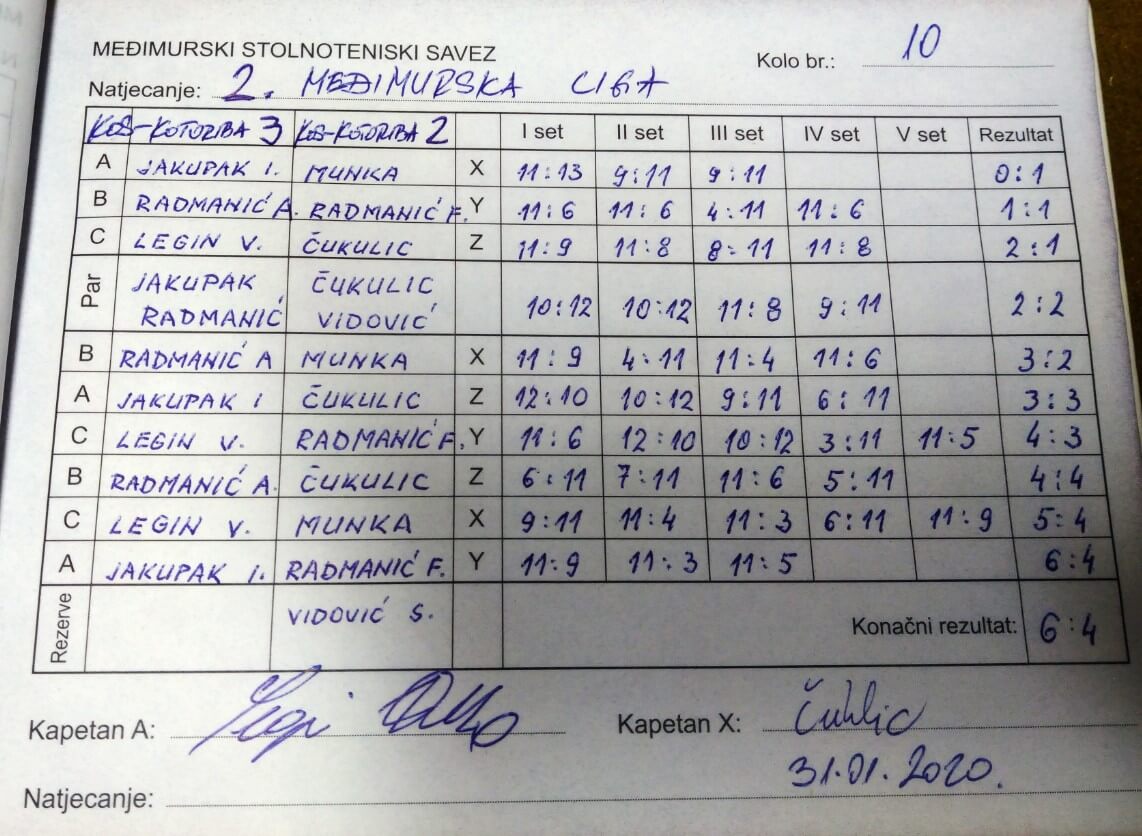 MEĐIMURSKI STOLNOTENISKI SAVEZ
Kolo br.: 10
Natjecanje: 2. MEĐIMURSKA LIGA
KOŠ-KOTORIBA 3 KOŠ-KOTORIBA 2 I set II set III set IV set V set Rezultat
A JAKUPAK I. MUNKA X 11:13 9:11 9:11 0:1
B RADMANIĆ A. RADMANIĆ F. Y 11:6 11:6 4:11 11:6 1:1
C LEGIN V. ČUKULIC Z 11:9 11:8 8:11 11:8 2:1
Par JAKUPAK RADMANIĆ ČUKULIC VIDOVIĆ 10:12 10:12 11:8 9:11 2:2
B RADMANIĆ A MUNKA X 11:9 4:11 11:4 11:6 3:2
A JAKUPAK I ČUKULIC Z 12:10 10:12 9:11 6:11 3:3
C LEGIN V. RADMANIĆ F. Y 11:6 12:10 10:12 3:11 11:5 4:3
B RADMANIĆ A. ČUKULIC Z 6:11 7:11 11:6 5:11 4:4
C LEGIN V. MUNKA X 9:11 11:4 11:3 6:11 11:9 5:4
A JAKUPAK I. RADMANIĆ F. Y 11:9 11:3 11:5 6:4
Rezerve VIDOVIĆ S. Konačni rezultat: 6:4
Kapetan A:
Kapetan X:
31.01.2020.
Natjecanje: